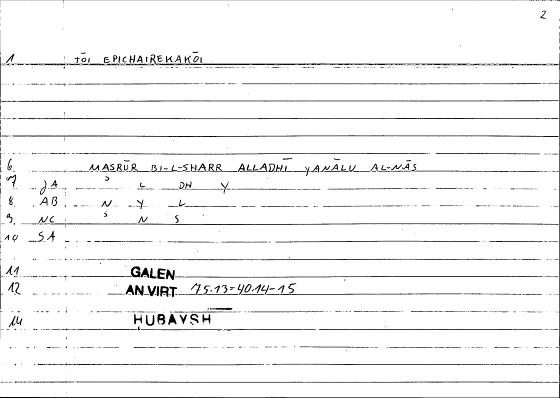 2
1 TŌI EPICHAIREKAKŌI
6 MASRŪR BI-L-SHARR ALLADHĪ YANĀLU AL-NĀS
7 JA ʾ L DH Y
8 AB N Y L
9 NC ʾ N S
10 SA
11 GALEN
12 AN.VIRT 75.13=40.14-15
14 HUBAYSH